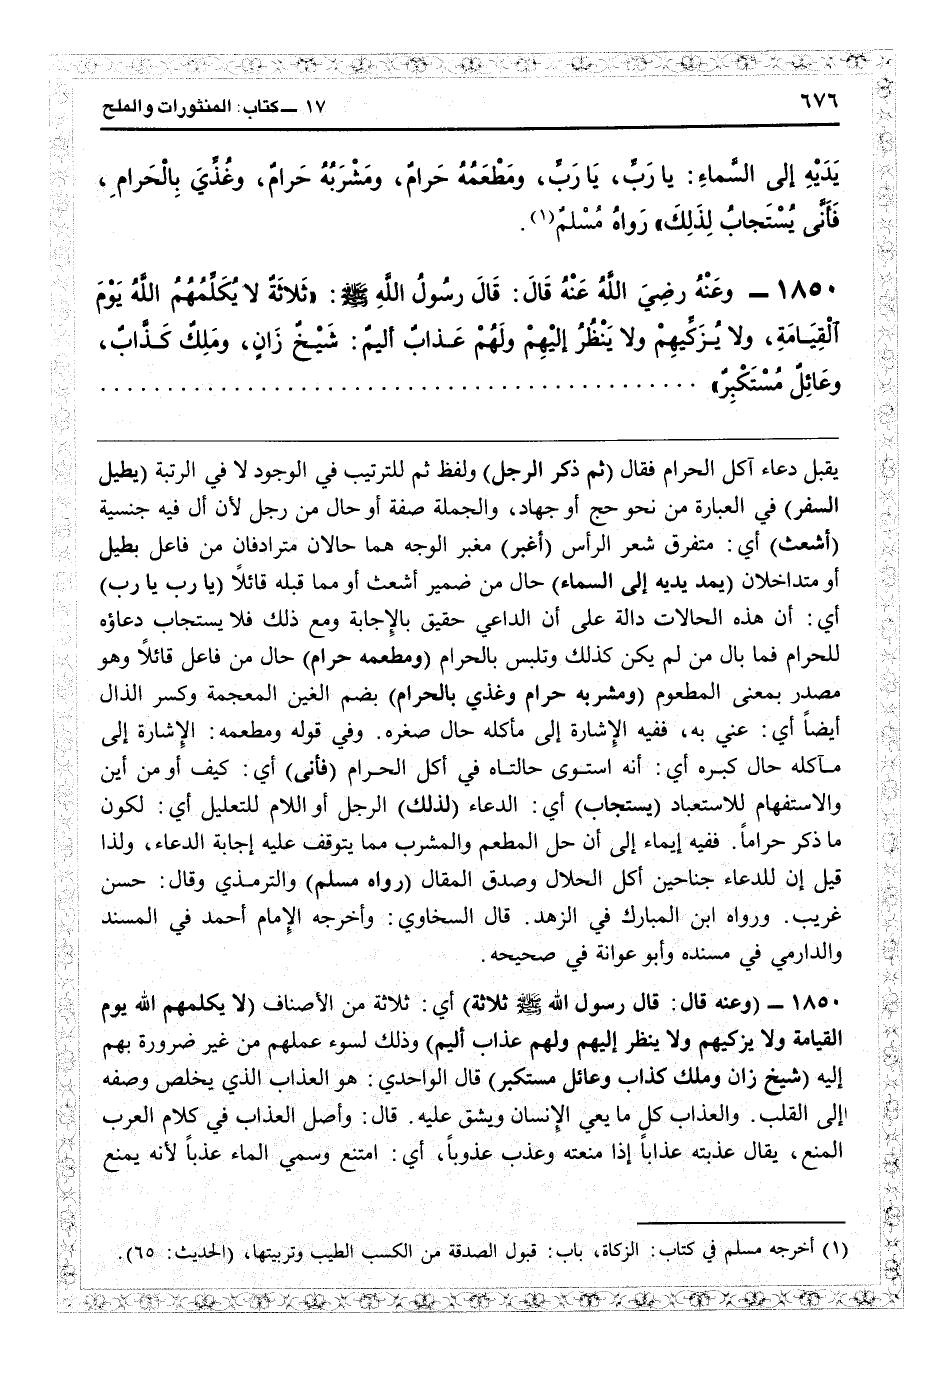 ٦٧٦
١٧ ــ كتاب: المنثورات والملح
يَدَيْهِ إلى السَّماءِ: يا رَبِّ، يَا رَبِّ، ومَطْعَمُهُ حَرامٌ، ومَشْرَبُهُ حَرامٌ، وغُذِّيَ بِالْحَرامِ،
فَأَنَّى يُسْتَجابُ لِذَلِكَ» رَواهُ مُسْلمٌ(١).
١٨٥٠ ــ وعَنْهُ رضِيَ اللَّهُ عَنْهُ قَالَ: قَالَ رسُولُ اللَّهِ ﷺ: «ثَلاثَةٌ لا يُكَلِّمُهُمُ اللَّهُ يَوْمَ
ٱلْقِيَامَةِ، ولا يُـزَكِّيهِمْ ولا يَنْظُرُ إلَيْهِمْ ولَهُمْ عَـذابٌ أليمٌ: شَيْـخٌ زَانٍ، ومَلِكٌ كَـذَّابٌ،
وعَائِلٌ مُسْتَكْبِرٌ» . . . . . . . . . . . . . . . . . . . . . . . . . . . . . . . . . . . . . . . . .
يقبل دعاء آكل الحرام فقال (ثم ذكر الرجل) ولفظ ثم للترتيب في الوجود لا في الرتبة (يطيل
السفر) في العبارة من نحو حج أو جهاد، والجملة صفة أو حال من رجل لأن أل فيه جنسية
(أشعث) أي: متفرق شعر الرأس (أغبر) مغبر الوجه هما حالان مترادفان من فاعل بطيل
أو متداخلان (يمد يديه إلى السماء) حال من ضمير أشعث أو مما قبله قائلًا (يا رب يا رب)
أي: أن هذه الحالات دالة على أن الداعي حقيق بالإِجابة ومع ذلك فلا يستجاب دعاؤه
للحرام فما بال من لم يكن كذلك وتلبس بالحرام (ومطعمه حرام) حال من فاعل قائلًا وهو
مصدر بمعنى المطعوم (ومشربه حرام وغذي بالحرام) بضم الغين المعجمة وكسر الذال
أيضاً أي: عني به، ففيه الإِشارة إلى مأكله حال صغره. وفي قوله ومطعمه: الإِشارة إلى
مـآكله حال كبـره أي: أنه استـوى حالتـاه في أكل الحـرام (فأنى) أي: كيف أو من أين
والاستفهام للاستعباد (يستجاب) أي: الدعاء (لذلك) الرجل أو اللام للتعليل أي: لكون
ما ذكر حراماً. ففيه إيماء إلى أن حل المطعم والمشرب مما يتوقف عليه إجابة الدعاء، ولذا
قيل إن للدعاء جناحين أكل الحلال وصدق المقال (رواه مسلم) والترمـذي وقال: حسن
غريب. ورواه ابن المبارك في الزهد. قال السخاوي: وأخرجه الإِمام أحمد في المسند
والدارمي في مسنده وأبو عوانة في صحيحه.
١٨٥٠ ــ (وعنه قال: قال رسول الله ﷺ ثلاثة) أي: ثلاثة من الأصناف (لا يكلمهم الله يوم
القيامة ولا يزكيهم ولا ينظر إليهم ولهم عذاب أليم) وذلك لسوء عملهم من غير ضرورة بهم
إليه (شيخ زان وملك كذاب وعائل مستكبر) قال الواحدي: هو العذاب الذي يخلص وصفه
إلى القلب. والعذاب كل ما يعي الإِنسان ويشق عليه. قال: وأصل العذاب في كلام العرب
المنع، يقال عذبته عذاباً إذا منعته وعذب عذوباً، أي: امتنع وسمي الماء عذباً لأنه يمنع
(١) أخرجه مسلم في كتاب: الزكاة، باب: قبول الصدقة من الكسب الطيب وتربيتها، (الحديث: ٦٥).